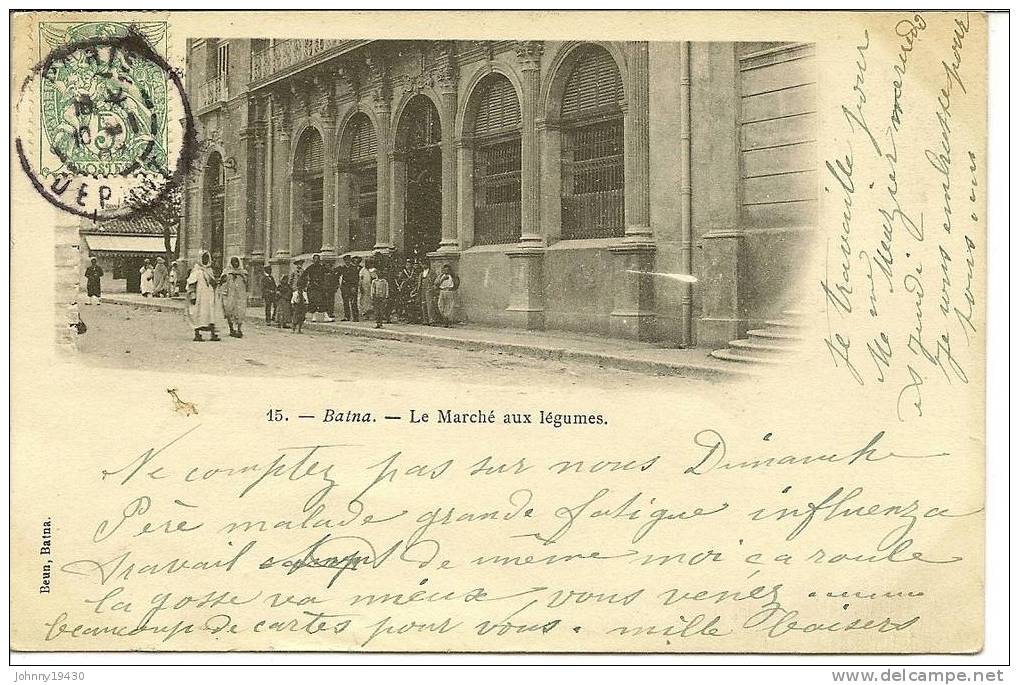 PARIS
DEP
POSTES
15. — Batna. — Le Marché aux légumes.
Beun, Batna.
Ne comptez pas sur nous Dimanche
Père malade grande fatigue influenza
travail de même moi ça roule
la gosse va mieux, vous venez .......
beaucoup de cartes pour vous. mille Baisers
Je travaille pour
Me
Je vous embrasse pour
tous
Johnny19430
www.delcampe.net